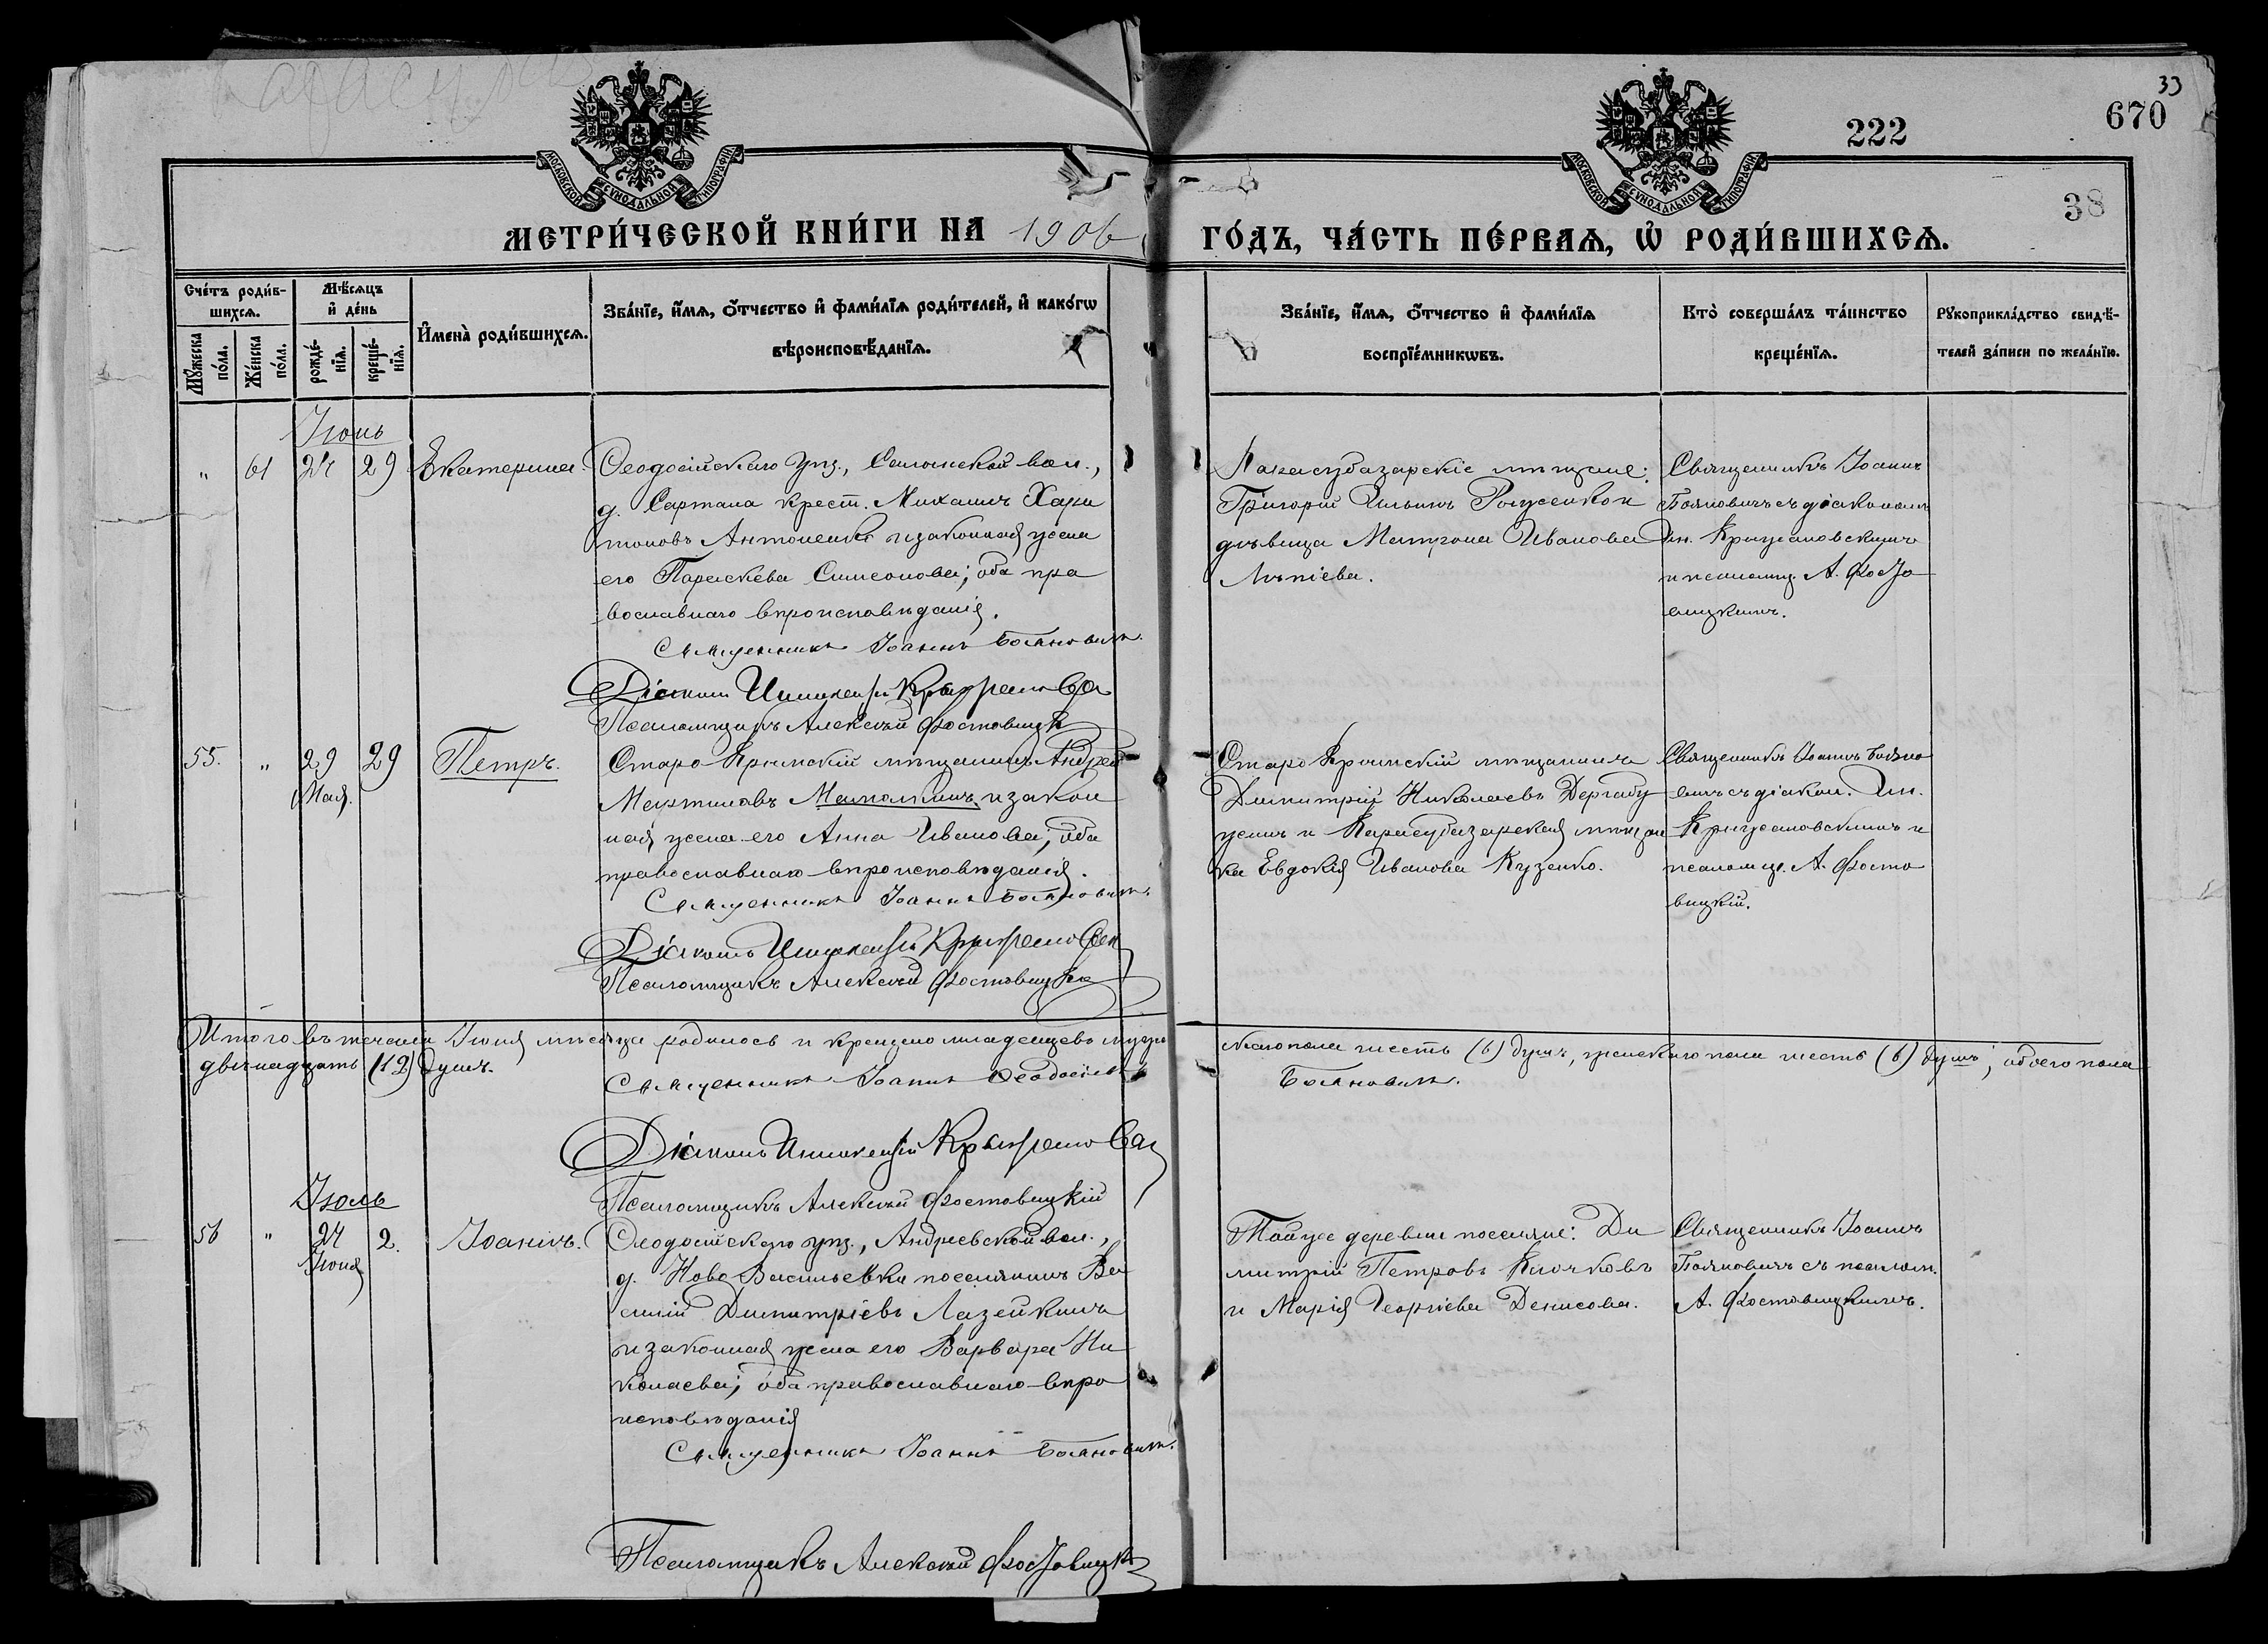 Карасуб
33
670
222
38
МОСКОВСКОЙ СѴНОДАЛЬНОЙ ТИПОГРАФІИ
МОСКОВСКОЙ СѴНОДАЛЬНОЙ ТИПОГРАФІИ
МЕТРИ́ЧЕСКОЙ КНИ́ГИ НА 1906
ГО́ДЪ, ЧА́СТЬ ПЕ́РВАѦ, Ѽ РОДИ́ВШИХСѦ.
Сче́тъ роди́в-
шихсѧ.
Мꙋ́жеска по́ла.
Же́нска по́ла.
Мѣ́сѧцъ
и҆ де́нь
рожде́-
нїѧ.
креще́-
нїѧ.
И҆мена̀ роди́вшихсѧ.
Зва́нїе, и҆́мѧ, ѻ҆́тчество и҆ фами́лїѧ роди́телей, и҆ како́гѡ
вѣроисповѣ́данїѧ.
Зва́нїе, и҆́мѧ, ѻ҆́тчество и҆ фами́лїѧ
воспрїе́мникѡвъ.
Кто̀ соверша́лъ та́инство
креще́нїѧ.
Рꙋкоприкла́дство свидѣ́-
телей за́писи по жела́нїю.
Іюнь
„ 61 24 29 Екатерина.
Ѳеодосійскаго уѣз., Салынской вол.,
д. Сартана крест. Михаилъ Хари
тоновъ Антоненко и законная жена
его Параскева Симеонова; оба пра
вославнаго вѣроисповѣданія.
Священникъ Іоаннъ Бояновичъ.
Діаконъ Иннокентій
Псаломщикъ Алексѣй Фостовицкій
Карасубазарскіе мѣщане:
Григорій Ильинъ и
дѣвица Матрона Иванова
Священникъ Іоаннъ
Бояновичъ съ діакономъ
Ин. Крыжановскимъ
и псаломщ. А. Фосто
вицкимъ.
55. „ 29 29 Петръ.
Мая.
Старо Крымскій мѣщанинъ Андрей
Мартиновъ и закон
ная жена его Анна Иванова; оба
православнаго вѣроисповѣданія.
Священникъ Іоаннъ Бояновичъ
Діаконъ Иннокентій
Псаломщикъ Алексѣй Фостовицкій
Старо Крымскій мѣщанинъ
Димитрій Николаевъ
и Карасубазарская мѣщан
ка Евдокія Иванова Кузенко.
Священникъ Іоаннъ Бояно
вичъ съ діакон. Ин.
Крыжановскимъ и
псаломщ. А. Фосто
вицкій.
Итого въ теченіи Іюня мѣсяца родилось и крещено младенцевъ муже
скаго пола шесть (6) душъ, женскаго пола шесть (6) душъ; обоего пола
двѣнадцать (12) душъ.
Священникъ Іоаннъ Ѳеодосіевъ
Бояновичъ.
Діаконъ Иннокентій
Псаломщикъ Алексѣй Фостовицкій
Іюль
56 „ 24 2. Іоаннъ.
Іюня
Ѳеодосійскаго уѣз., Андреевской вол.,
д. Ново Васильевки поселянинъ Ва
силій Димитріевъ Лазейкинъ
и законная жена его Варвара Ни
колаева; оба православнаго вѣро
исповѣданія
Священникъ Іоаннъ Бояновичъ.
Псаломщикъ Алексѣй Фостовицкій
Той же деревни поселяне: Ди
митрій Петровъ Клочковъ
и Марія Георгіева Денисова.
Священникъ Іоаннъ
Бояновичъ съ псалом.
А. Фостовицкимъ.